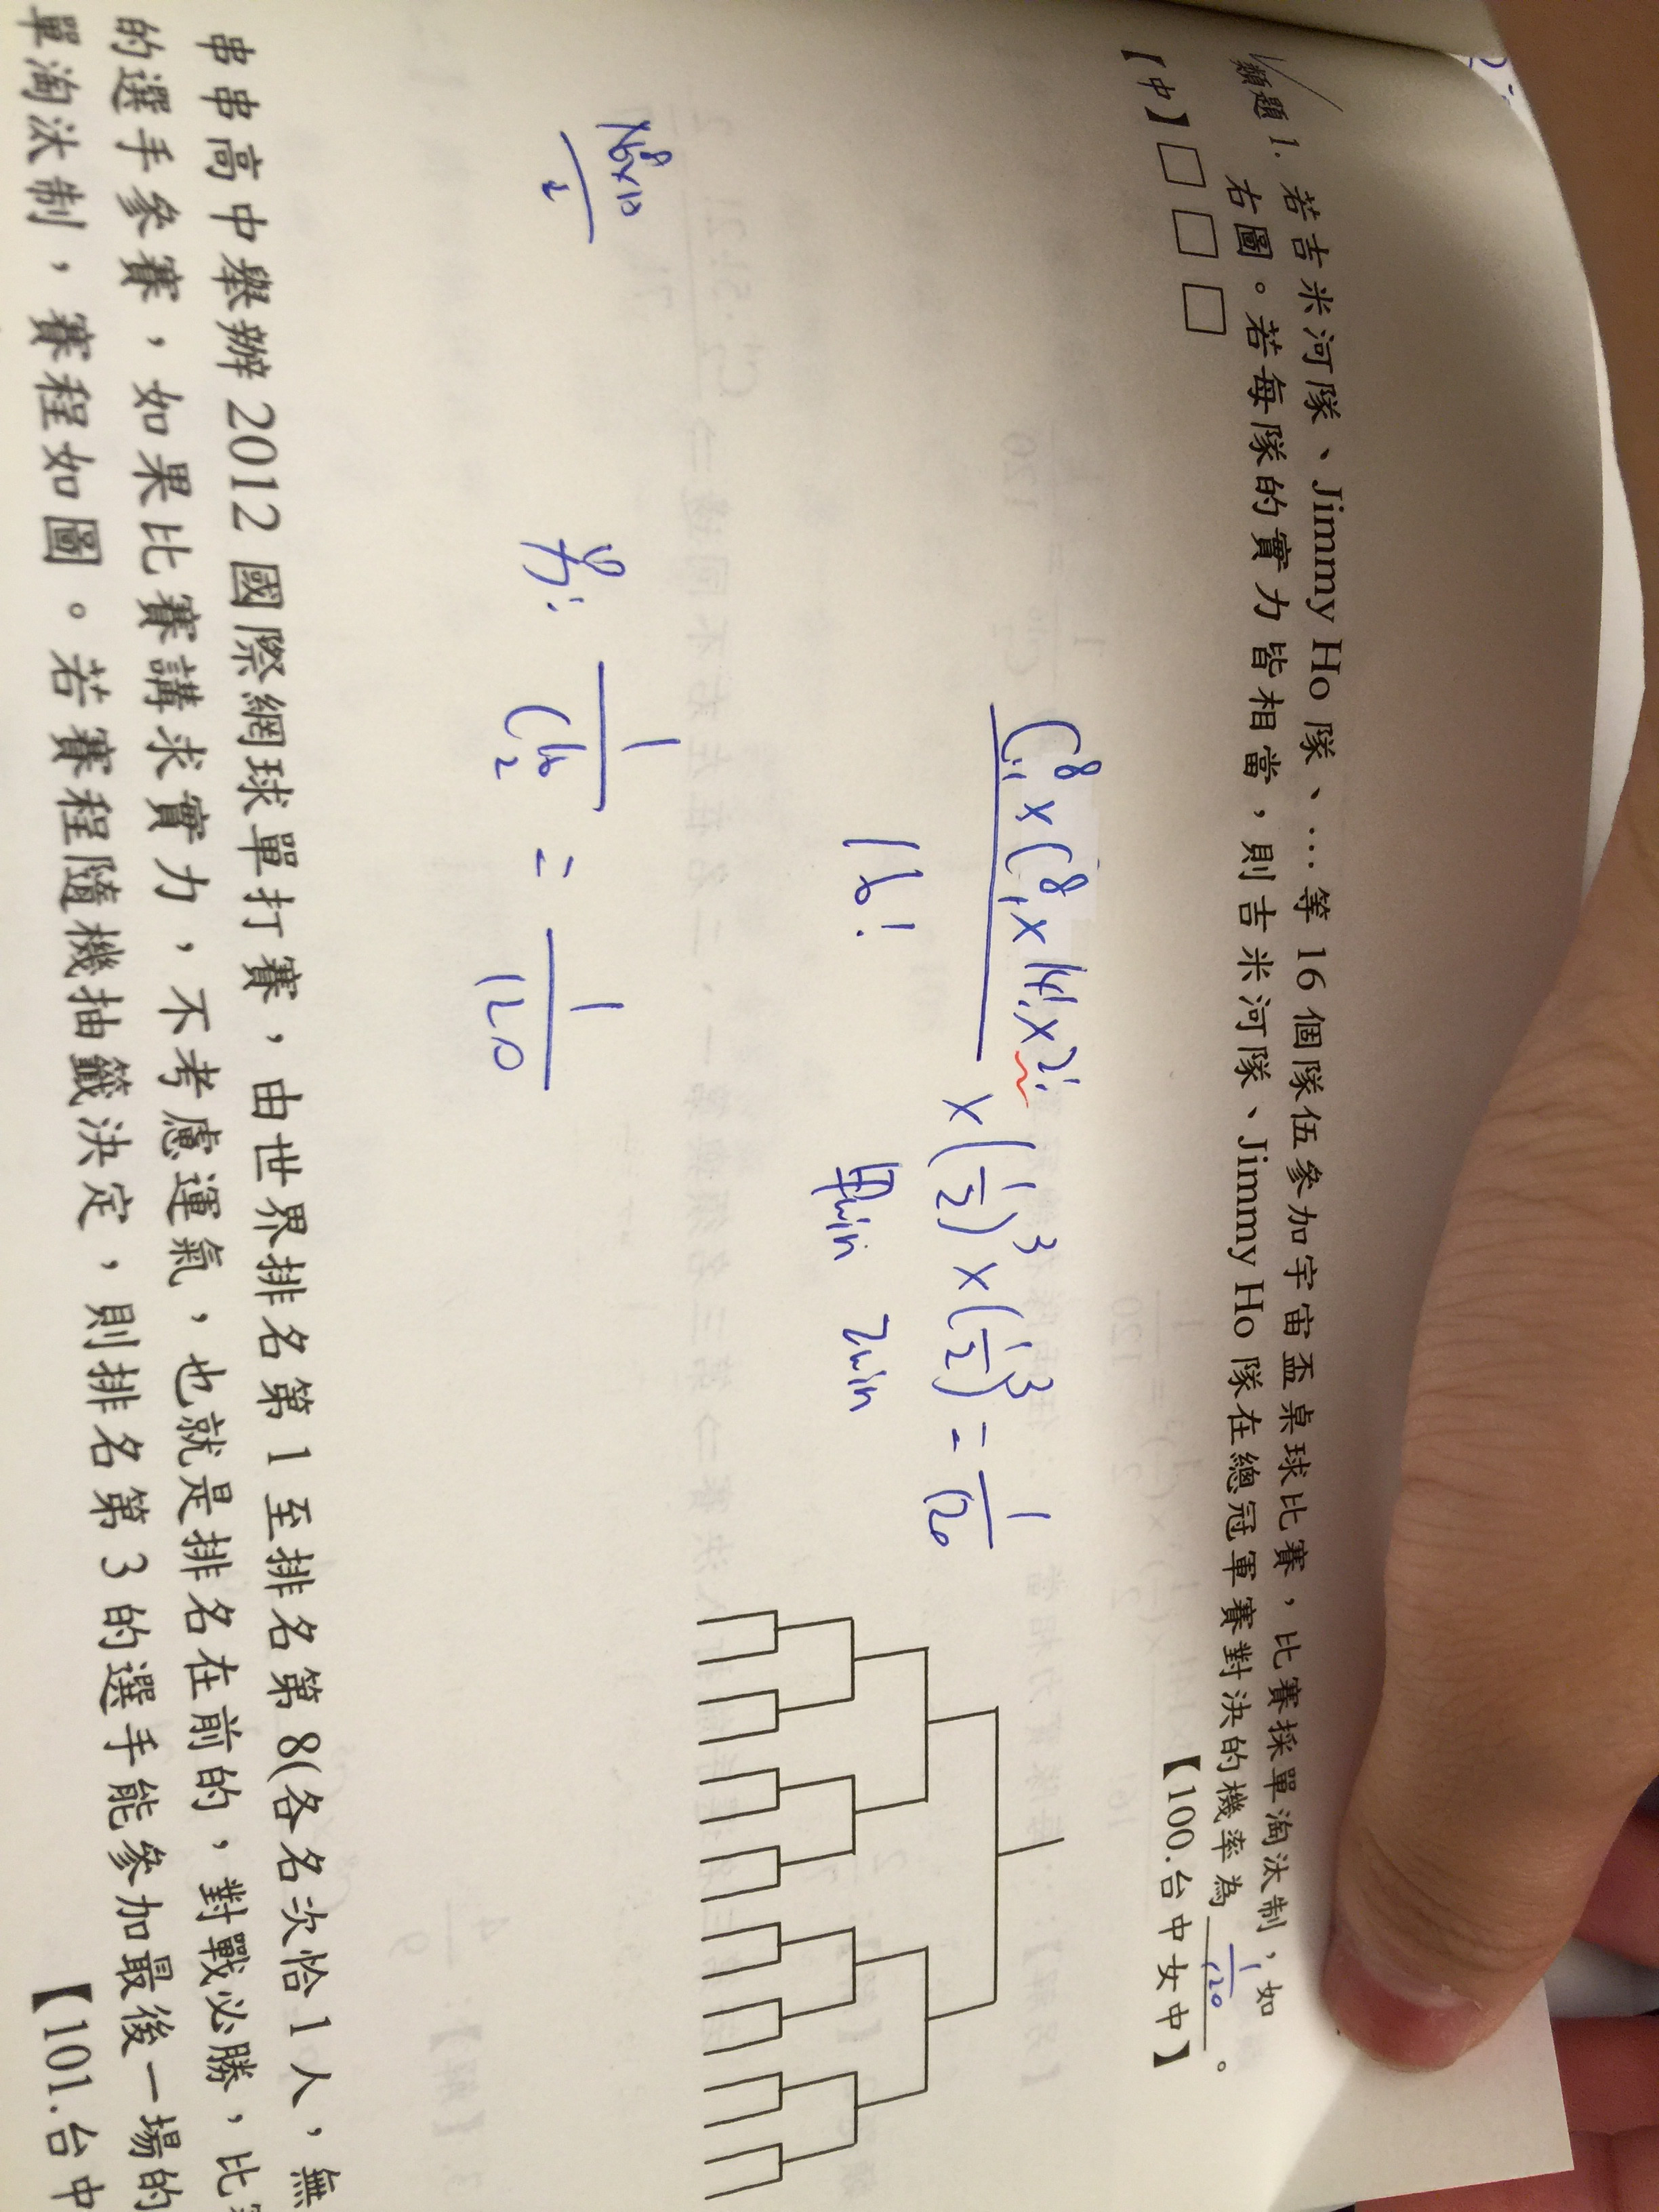 類題 1. 若吉米河隊、Jimmy Ho 隊、…等 16 個隊伍參加宇宙盃桌球比賽,比賽採單淘汰制,如
右圖。若每隊的實力皆相當,則吉米河隊、Jimmy Ho 隊在總冠軍賽對決的機率為 1/120 。
【中】□□□
【100.台中女中】
C⁸₁×C⁸₁×14!×2! / 16! ×(1/2)³×(1/2)³ = 1/120
甲win 乙win
另: 1/C¹⁶₂ = 1/120
串串高中舉辦 2012 國際網球單打賽,由世界排名第 1 至排名第 8(各名次恰 1 人,無
的選手參賽,如果比賽講求實力,不考慮運氣,也就是排名在前的,對戰必勝,比
單淘汰制,賽程如圖。若賽程隨機抽籤決定,則排名第 3 的選手能參加最後一場的
【101.台中